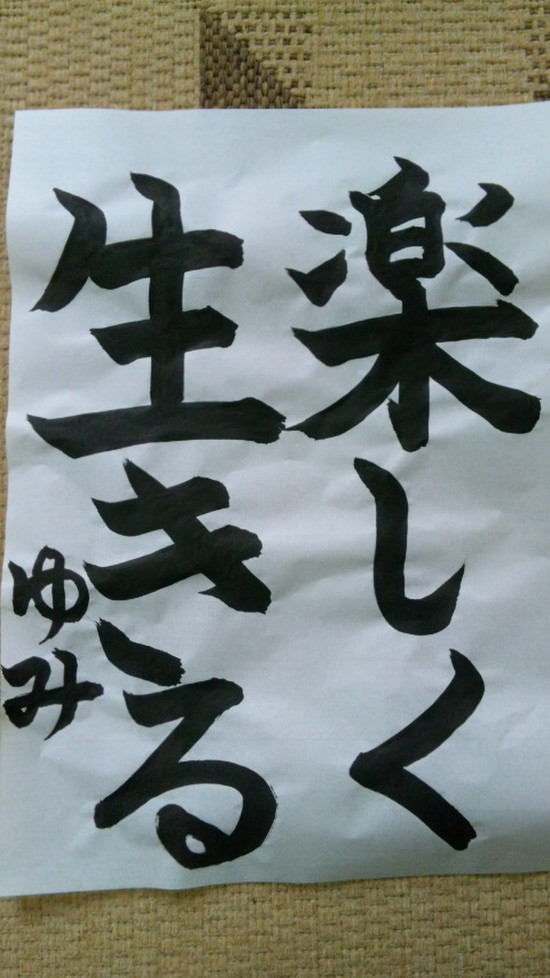 楽しく
生きる
ゆみ